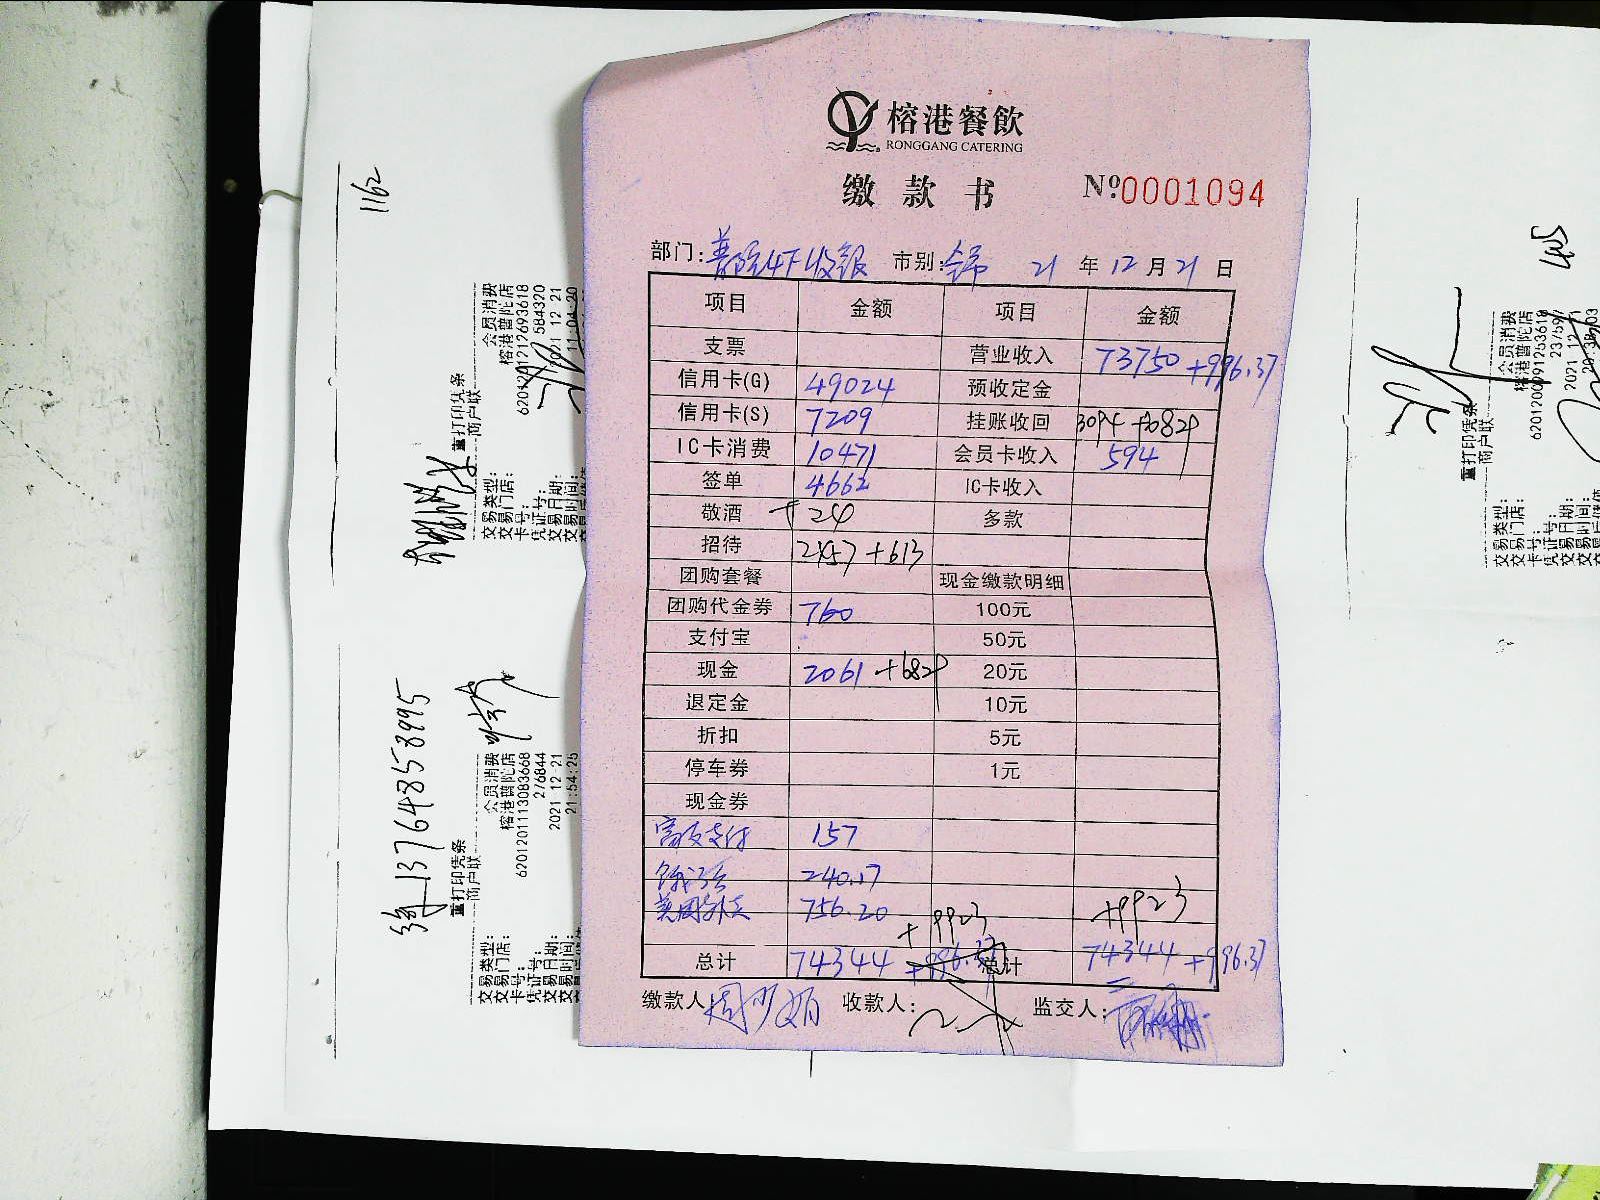 榕港餐飲
RONGGANG CATERING
缴款书 №0001094
部门:普陀4F收银 市别:全市 21年12月21日
项目 金额 项目 金额
支票 营业收入 73750 +996.37
信用卡(G) 49024 预收定金
信用卡(S) 7209 挂账收回 3094 +6829
IC卡消费 10471 会员卡收入 594
签单 4662 IC卡收入
敬酒 +24 多款
招待 +613
团购套餐 现金缴款明细
团购代金券 760 100元
支付宝 50元
现金 2061 +6829 20元
退定金 10元
折扣 5元
停车券 1元
现金券
157
240.17
美团外卖 756.20
+9923 +9923
总计 74344 +996.37 总计 74344 +996.37
缴款人 收款人: 监交人:
1162
重打印凭条
商户联
交易类型: 会员消费
交易门店: 榕港普陀店
卡号: 6201201212693618
凭证号: 584320
交易日期: 2021 12 21
交易时间: 11:04:20
13764858995
重打印凭条
商户联
交易类型: 会员消费
交易门店: 榕港普陀店
卡号: 6201201113083668
凭证号: 276844
交易日期: 2021 12 21
交易时间: 21:54:25
405
重打印凭条
商户联
交易类型: 会员消费
交易门店: 榕港普陀店
卡号: 620120091263618
凭证号:
交易日期:
交易时间: